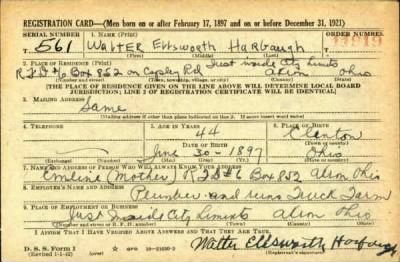 REGISTRATION CARD—(Men born on or after February 17, 1897 and on or before December 31, 1921)
SERIAL NUMBER 1. NAME (Print) ORDER NUMBER
T 561 Walter Ellsworth Harbaugh
(First) (Middle) (Last)
2. PLACE OF RESIDENCE (Print) Just inside City Limits
R.F.D #6 Box 852 on Copley Rd Akron Ohio
(Number and street) (Town, township, village, or city) (County) (State)
[THE PLACE OF RESIDENCE GIVEN ON THE LINE ABOVE WILL DETERMINE LOCAL BOARD
JURISDICTION; LINE 2 OF REGISTRATION CERTIFICATE WILL BE IDENTICAL]
3. MAILING ADDRESS
Same
[Mailing address if other than place indicated on line 2. If same insert word same]
4. TELEPHONE 5. AGE IN YEARS 6. PLACE OF BIRTH
44 Clinton
DATE OF BIRTH (Town or county)
June 30 - 1897 Ohio
(Exchange) (Number) (Mo.) (Day) (Yr.) (State or country)
7. NAME AND ADDRESS OF PERSON WHO WILL ALWAYS KNOW YOUR ADDRESS
Emline (Mother) R.F.D #6 Box 852 Akron Ohio
8. EMPLOYER'S NAME AND ADDRESS
Plumber and runs Truck Farm
9. PLACE OF EMPLOYMENT OR BUSINESS
Just Inside City Liments Akron Ohio
(Number and street or R. F. D. number) (Town) (County) (State)
I AFFIRM THAT I HAVE VERIFIED ABOVE ANSWERS AND THAT THEY ARE TRUE.
D. S. S. Form 1
(Revised 1-1-42) (over) 16-21630-2
Walter Ellsworth Harbaugh
(Registrant's signature)